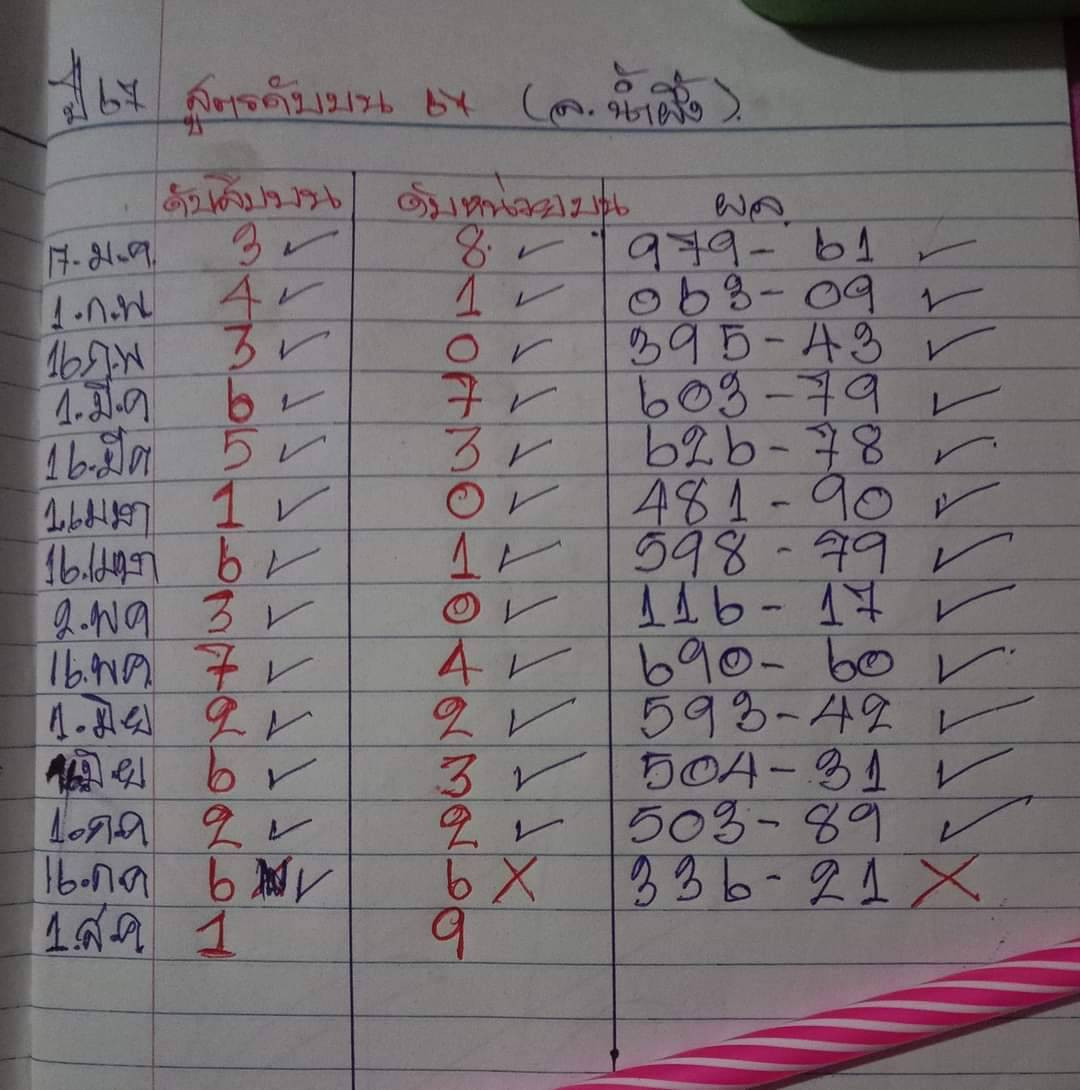 ปี 67 สูตรดับบน 67 (อ. น้ำผึ้ง).
ดับสิบบน ดับหน่วยบน ผล.
17.ม.ค. 3 ✓ 8 ✓ 979-61 ✓
1.ก.พ 4 ✓ 1 ✓ 063-09 ✓
16ก.พ 3 ✓ 0 ✓ 395-43 ✓
1.มี.ค 6 ✓ 7 ✓ 603-79 ✓
16.มีค 5 ✓ 3 ✓ 626-78 ✓
1.เมษา 1 ✓ 0 ✓ 481-90 ✓
16.เมษา 6 ✓ 1 ✓ 598-79 ✓
2.พค 3 ✓ 0 ✓ 116-17 ✓
16.พค. 7 ✓ 4 ✓ 690-60 ✓
1.มิย 2 ✓ 2 ✓ 593-42 ✓
16มิ.ย 6 ✓ 3 ✓ 504-31 ✓
1.กค 2 ✓ 2 ✓ 503-89 ✓
16.กค 6 ✓ 6 X 336-21 X
1.ส.ค 1 9